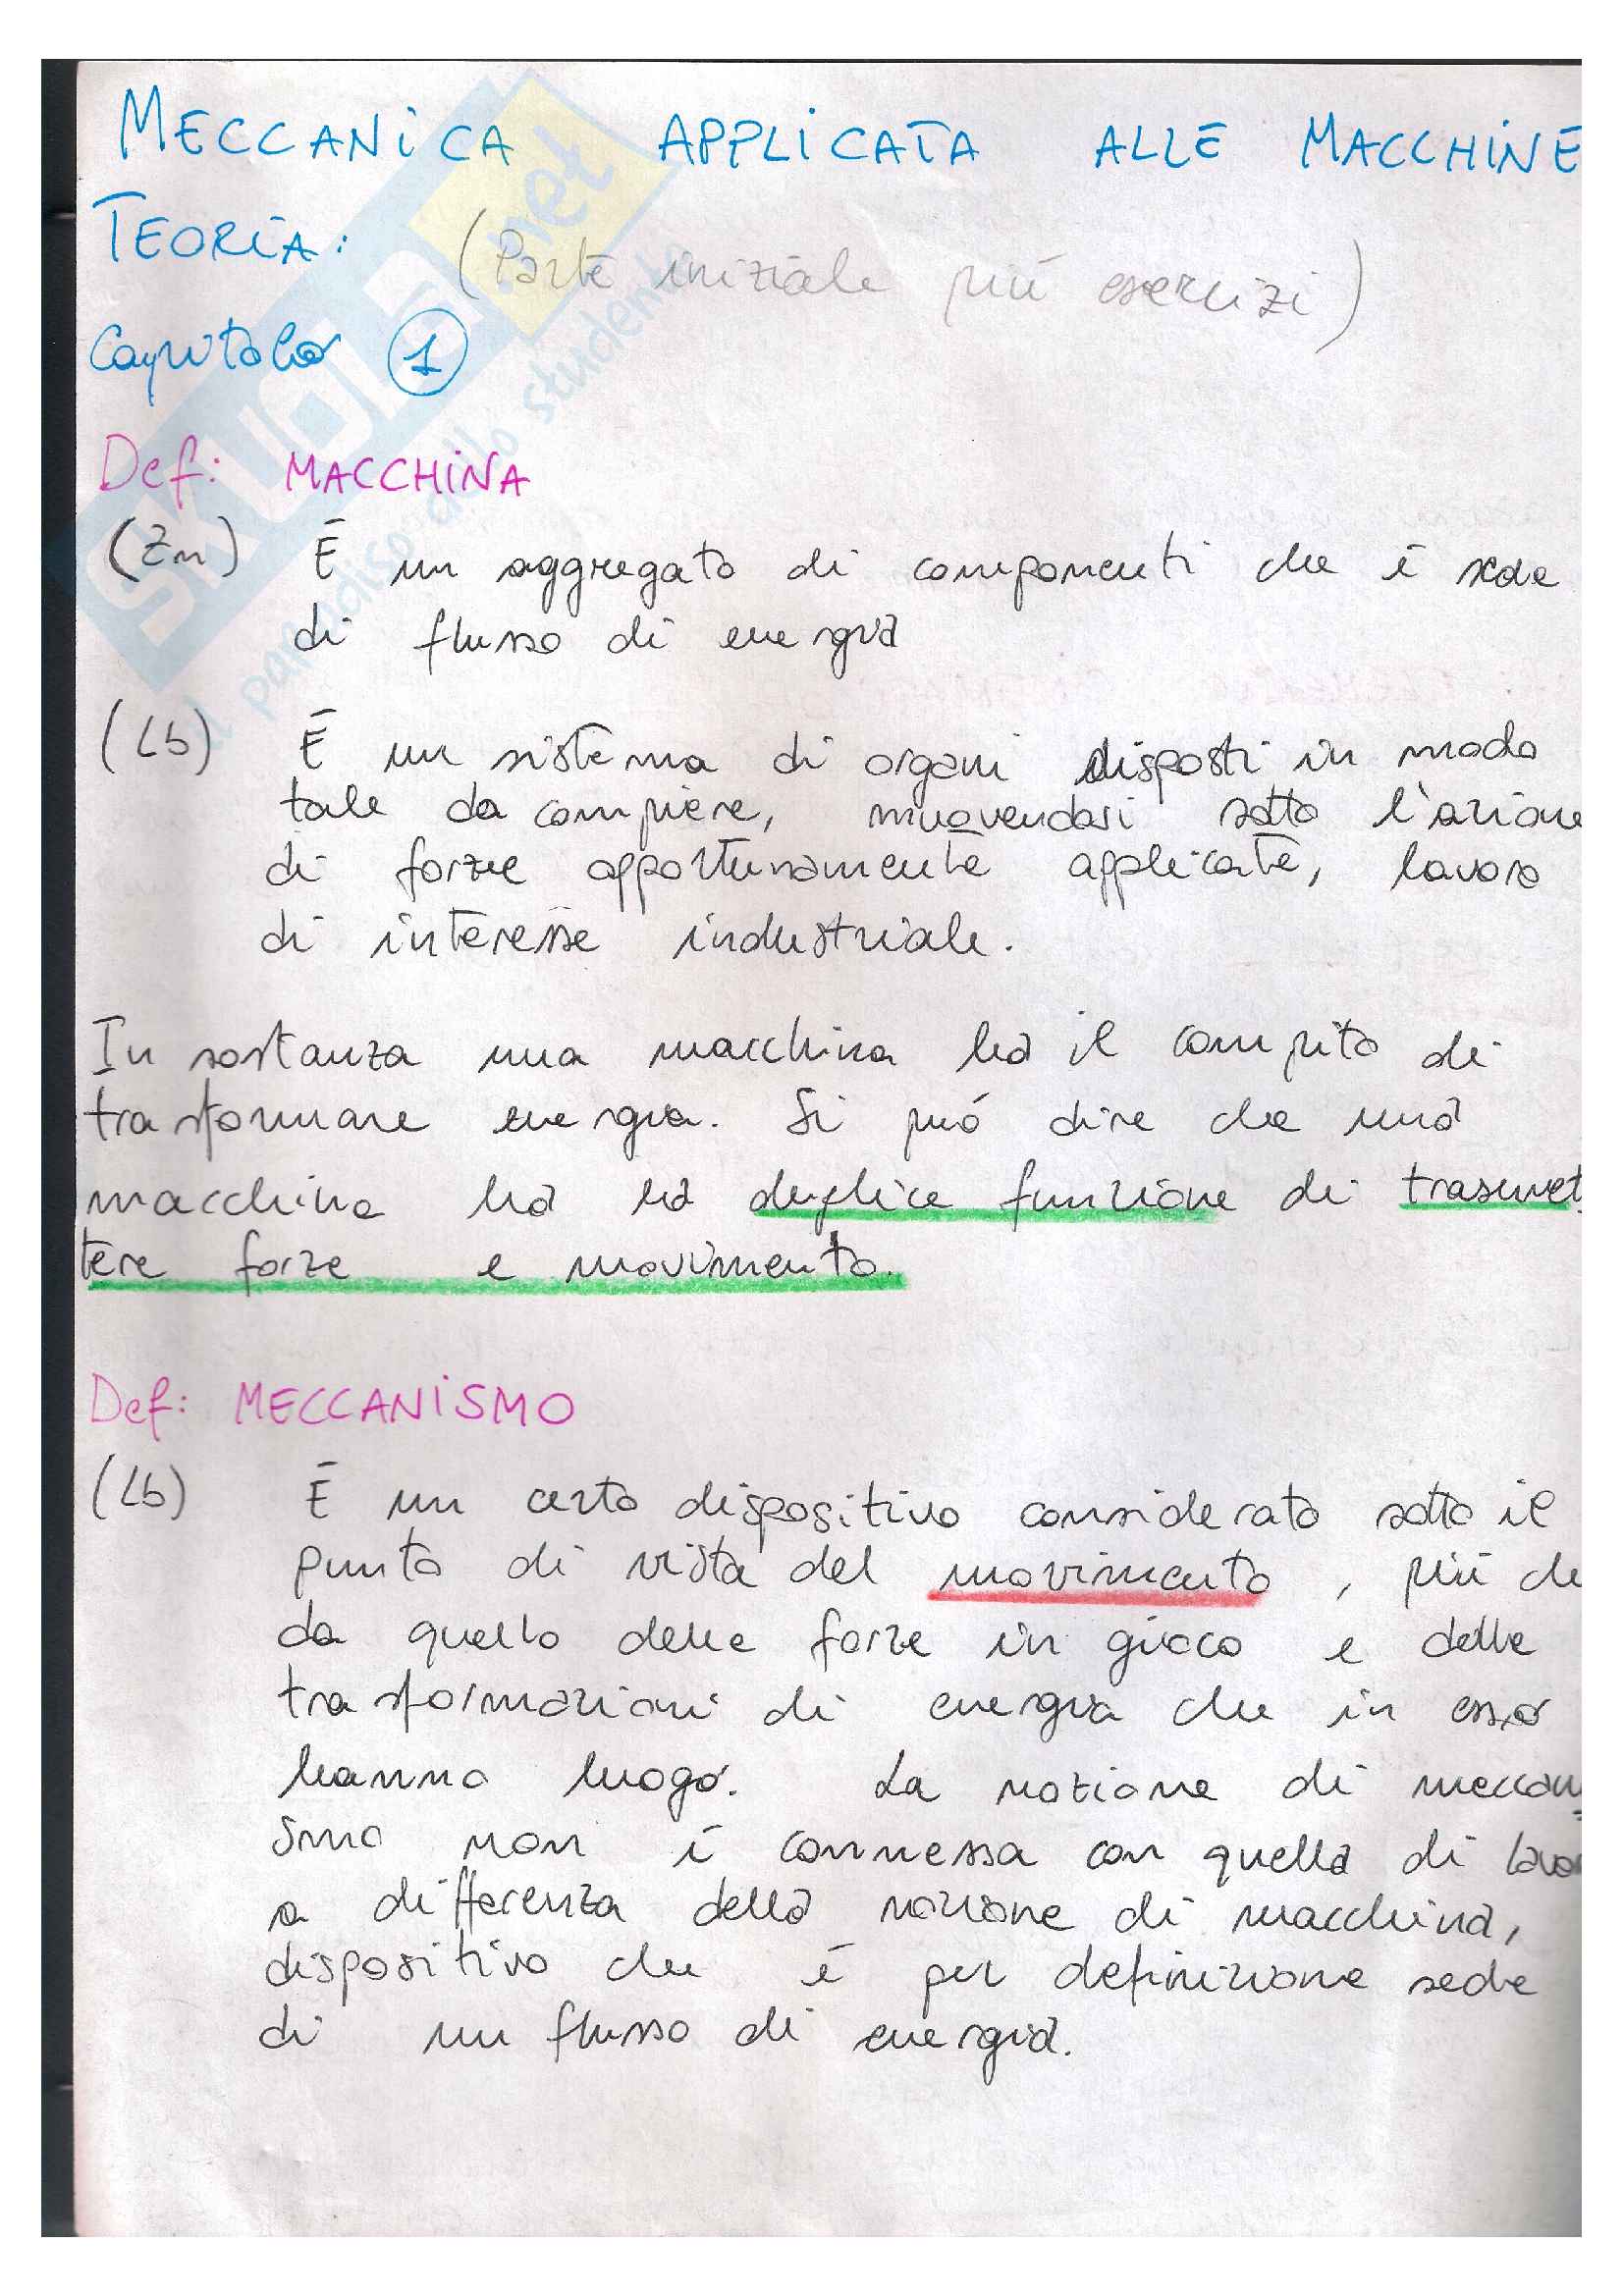 MECCANICA APPLICATA ALLE MACCHINE
TEORIA: (Parte iniziale più esercizi)
Capitolo 1
Def: MACCHINA
(Zn) È un aggregato di componenti che è sede
di flusso di energia
(Lb) È un sistema di organi disposti in modo
tale da compiere, muovendosi sotto l'azione
di forze opportunamente applicate, lavoro
di interesse industriale.
In sostanza una macchina ha il compito di
trasformare energia. Si può dire che una
macchina ha la duplice funzione di trasmet
tere forze e movimento.
Def: MECCANISMO
(Lb) È un certo dispositivo considerato sotto il
punto di vista del movimento, più che
da quello delle forze in gioco e delle
trasformazioni di energia che in esso
hanno luogo. La nozione di meccani
smo non è connessa con quella di lavoro
a differenza della nozione di macchina,
dispositivo che è per definizione sede
di un flusso di energia.
SKUOLA.net
il paradiso dello studente